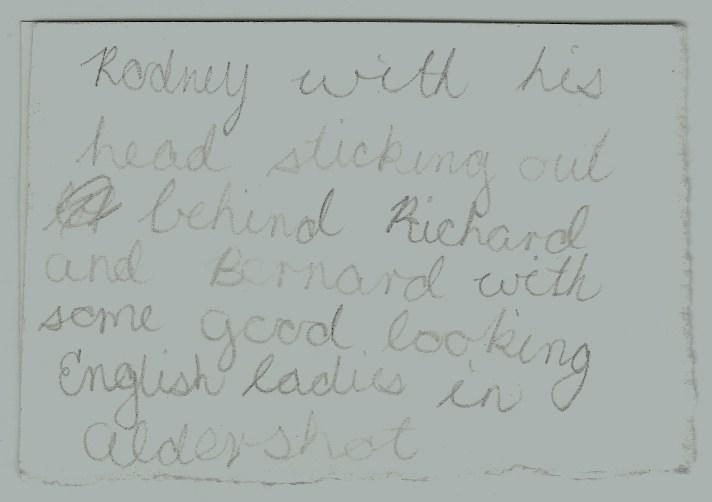 Rodney with his
head sticking out
behind Richard
and Bernard with
some good looking
English ladies in
Aldershot